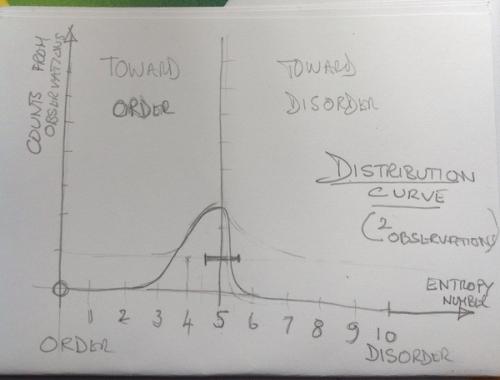 COUNTS FROM
OBSERVATIONS
TOWARD
ORDER
TOWARD
DISORDER
DISTRIBUTION
CURVE
(2 OBSERVATIONS)
ENTROPY
NUMBER
1 2 3 4 5 6 7 8 9 10
ORDER
DISORDER